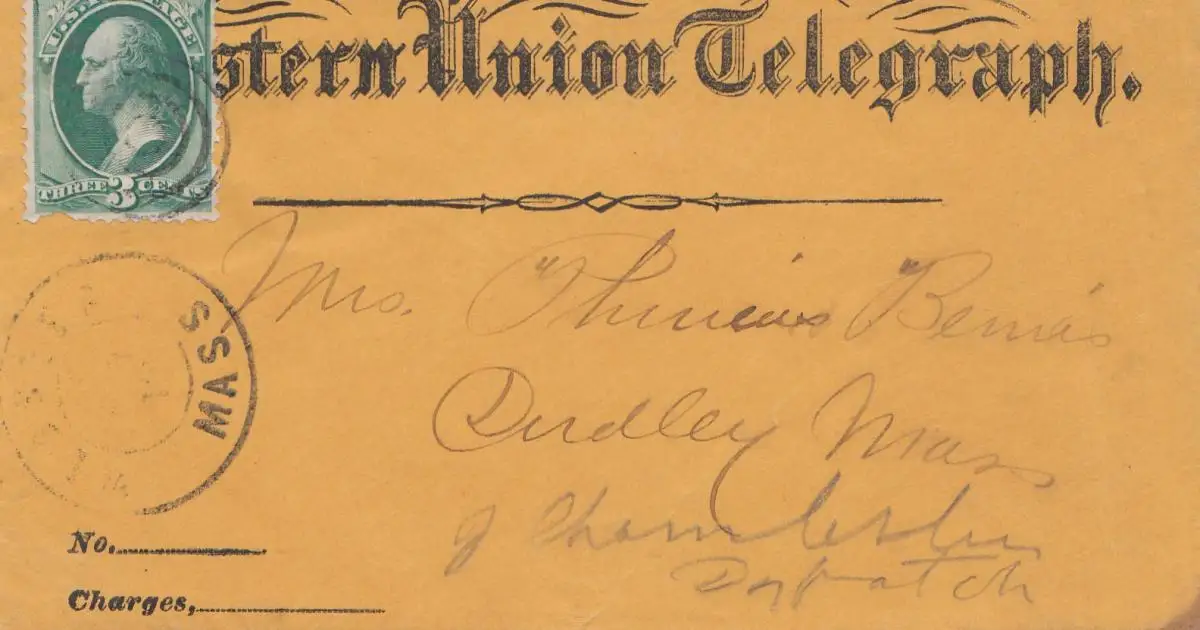 U.S. POSTAGE
stern Union Telegraph.
THREE 3 CENTS
MASS
Mrs. Phineas Bemis
Dudley Mass
J Chamberlin
Dispatch
No.
Charges,